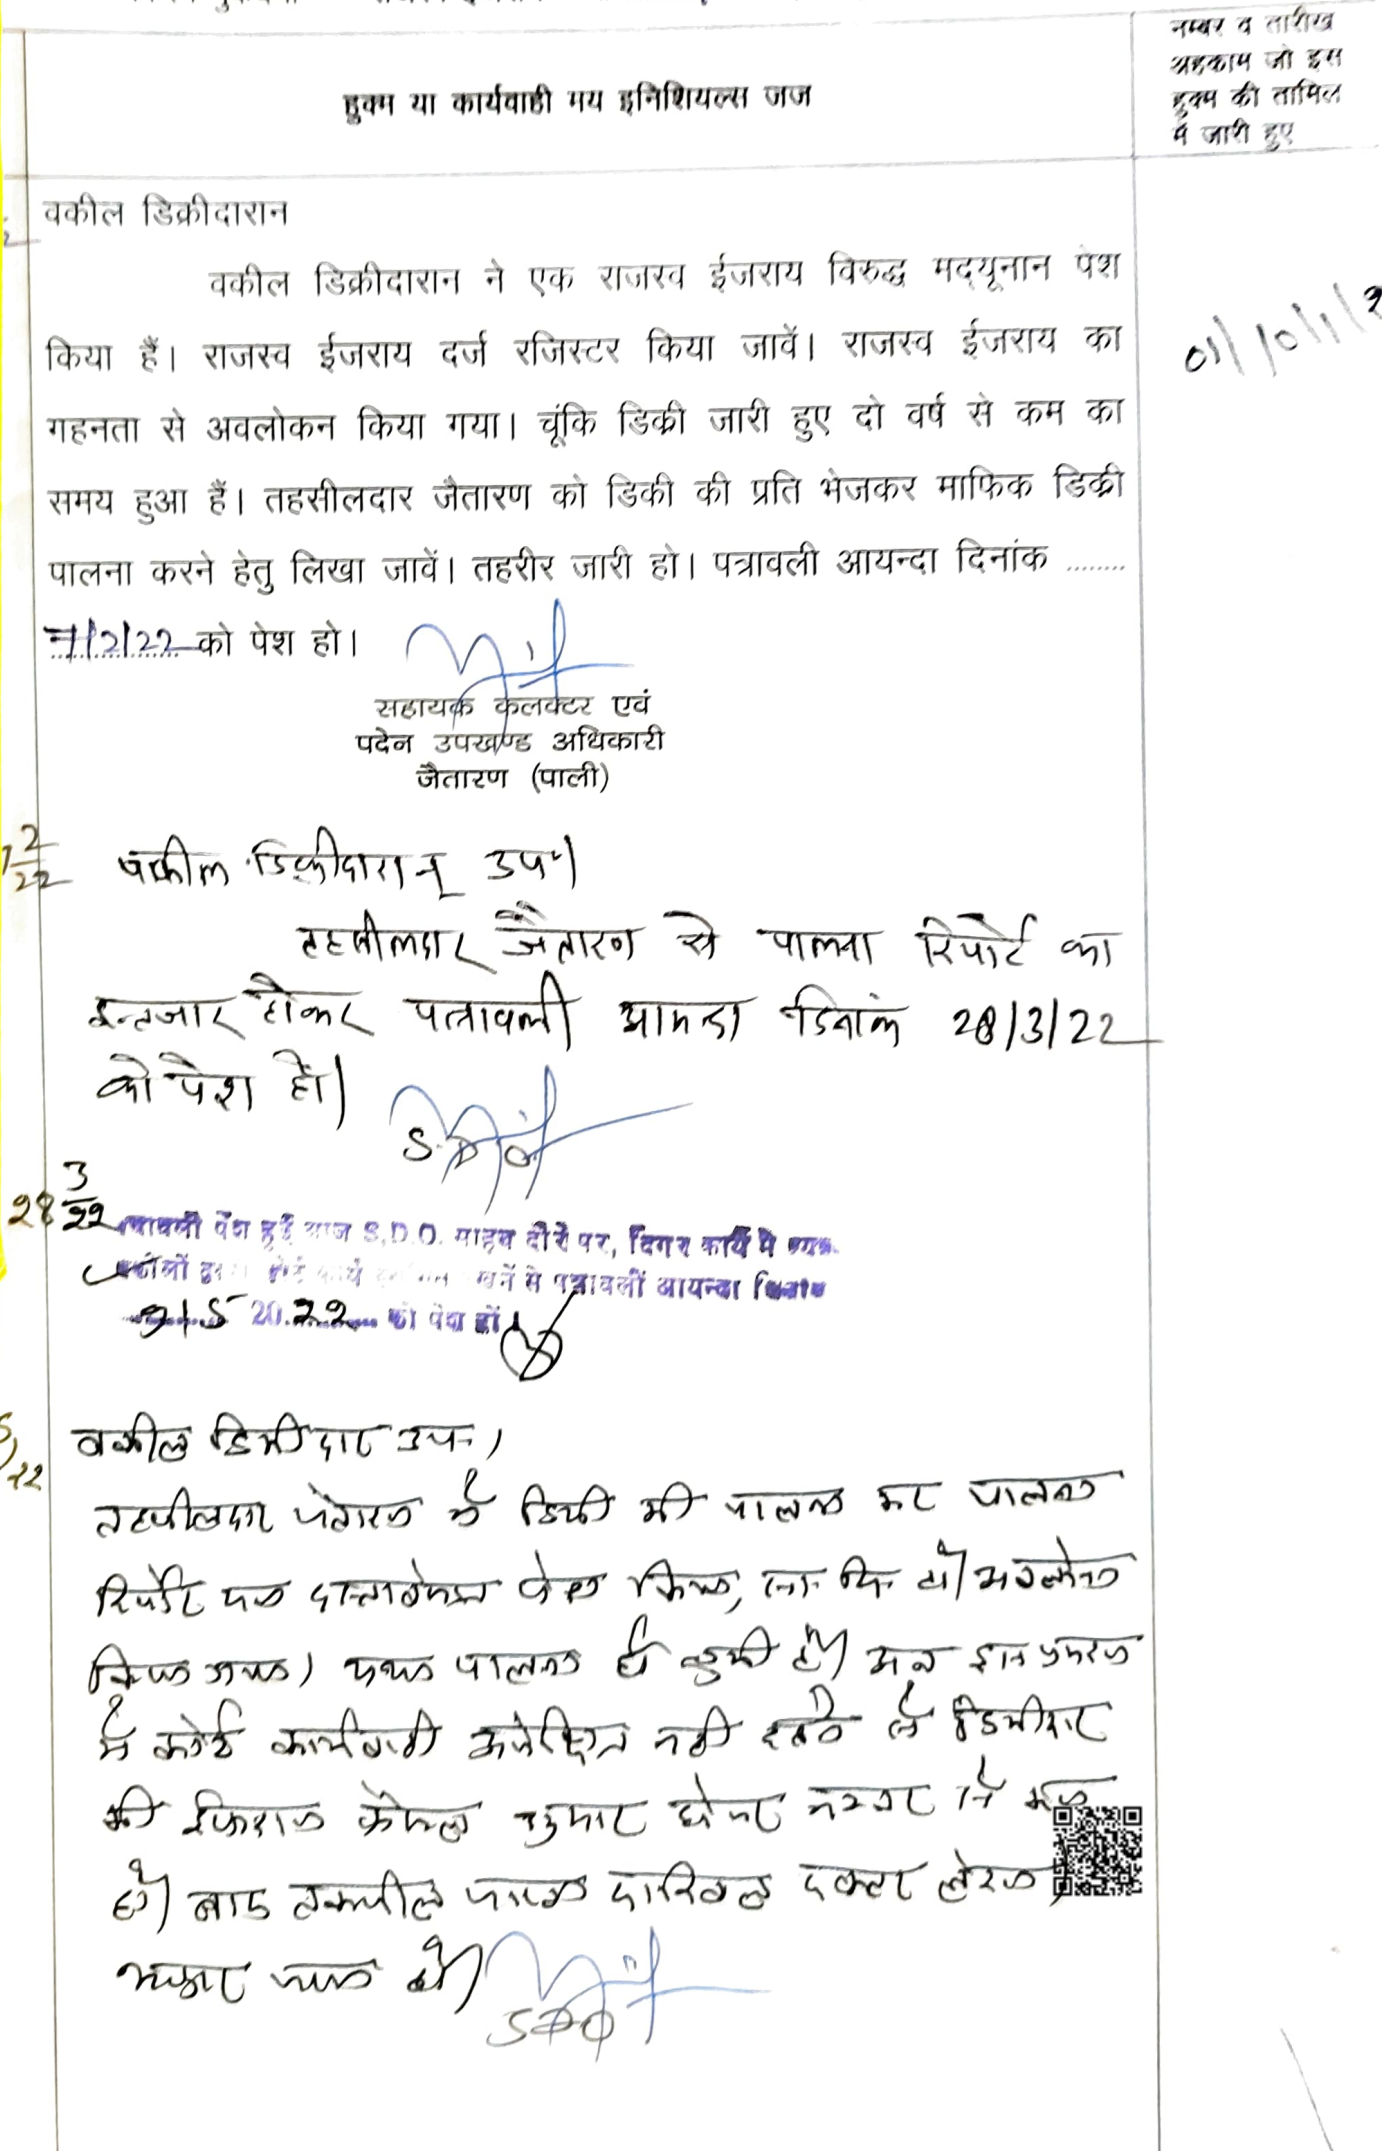 नम्बर व तारीख
अहकाम जो इस
हुक्म की तामिल
में जारी हुए
हुक्म या कार्यवाही मय इनिशियल्स जज
वकील डिक्रीदारान
वकील डिक्रीदारान ने एक राजस्व ईजराय विरुद्ध मद्यूनान पेश
किया हैं। राजस्व ईजराय दर्ज रजिस्टर किया जावें। राजस्व ईजराय का
गहनता से अवलोकन किया गया। चूंकि डिक्री जारी हुए दो वर्ष से कम का
समय हुआ हैं। तहसीलदार जैतारण को डिकी की प्रति भेजकर माफिक डिक्री
पालना करने हेतु लिखा जावें। तहरीर जारी हो। पत्रावली आयन्दा दिनांक ........
7/2/22 को पेश हो।
सहायक कलक्टर एवं
पदेन उपखण्ड अधिकारी
जैतारण (पाली)
2
22
वकील डिक्रीदारान उप।
तहसीलदार जैतारण से पालना रिपोर्ट का
इन्तजार होकर पत्रावली आयन्दा दिनांक 28/3/22
को पेश हो।
S.D.O.
28 3/22
पत्रावली पेश हुई आज S.D.O. साहब दौरे पर, दिगर कार्य में
से पत्रावली आयन्दा
9/5 20.22 को पेश हो
वकील डिक्रीदार उप।
तहसीलदार जैतारण ने डिक्री की पालना कर पालना
रिपोर्ट मय दस्तावेजात पेश किया, अवलोकन
किया गया। पालना हो चुकी है। अब इस प्रकरण
में कोई कार्यवाही अपेक्षित नहीं डिक्रीदार
की फैसल शुमार होकर नम्बर से कम
हो। बाद तकमील दाखिल दफ्तर
हो।
SDO